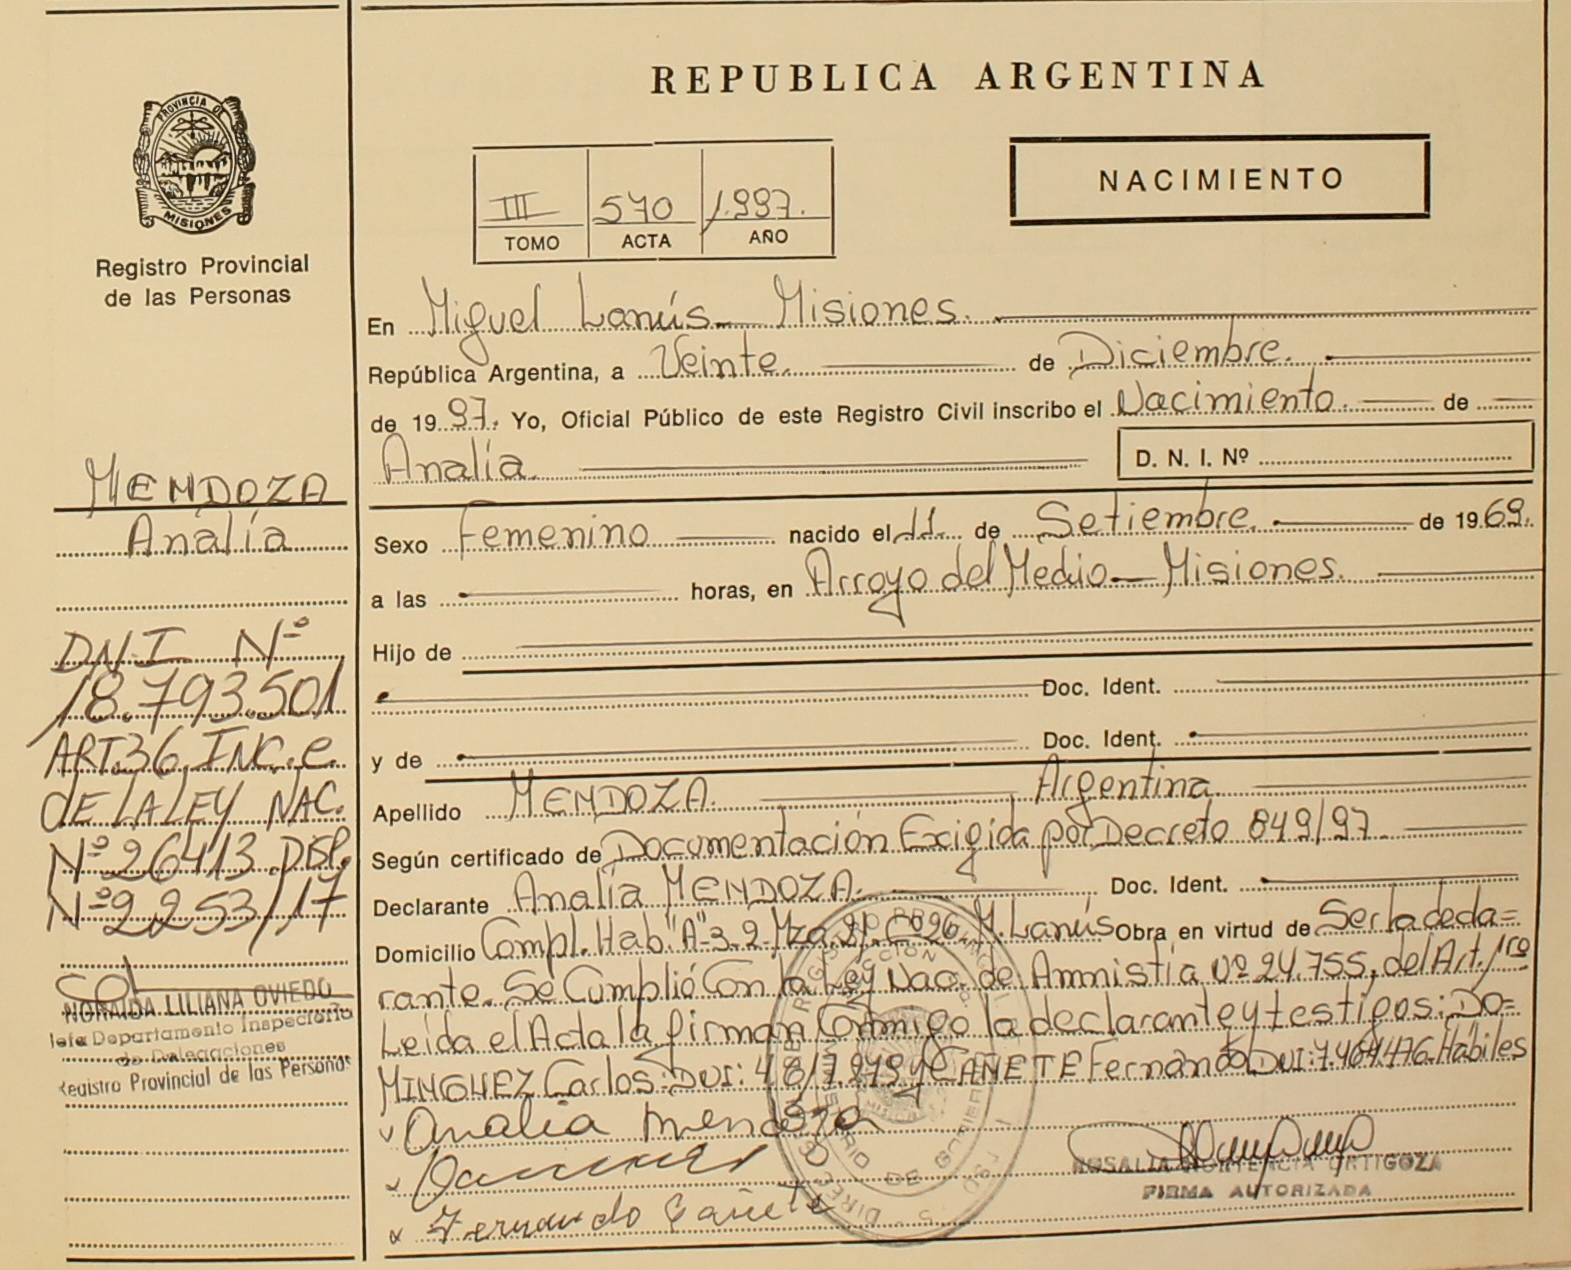 REPUBLICA ARGENTINA
PROVINCIA DE
MISIONES
Registro Provincial
de las Personas
III 570 1.997.
TOMO ACTA AÑO
NACIMIENTO
En Miguel Lanús - Misiones.
República Argentina, a Veinte. de Diciembre.
de 19 97. Yo, Oficial Público de este Registro Civil inscribo el Nacimiento. de
Analía. D. N. I. Nº
Sexo Femenino nacido el 11. de Setiembre. de 19 69.
a las horas, en Arroyo del Medio - Misiones.
Hijo de
Doc. Ident.
y de Doc. Ident.
Apellido MENDOZA. Argentina.
Según certificado de Documentación Exigida por Decreto 849/97
Declarante Analía MENDOZA. Doc. Ident.
Domicilio Compl. Hab. "A"-3.2. Mza. 21. Cº 26. M. Lanús Obra en virtud de Ser la decla=
rante. Se Cumplió Con la Ley Nac. de Amnistía Nº 24.755, del Art. 1ro
Leída el Acta la firman Conmigo la declarante y testigos: DO=
MINGUEZ Carlos: DNI: y CAÑETE Fernando DNI: 7.464.476. Hábiles
Analia Mendoza
Fernando Cañete
ROSALIA HORTENCIA ORTIGOZA
FIRMA AUTORIZADA
MENDOZA
Analía
D.N.I. Nº
18.793.501
ART.36, INC. e.
DE LA LEY NAC.
Nº 26413 DISP.
Nº 2253/17
NORAIDA LILIANA OVIEDO
Jefa Departamento Inspectoria
de Delegaciones
Registro Provincial de las Personas